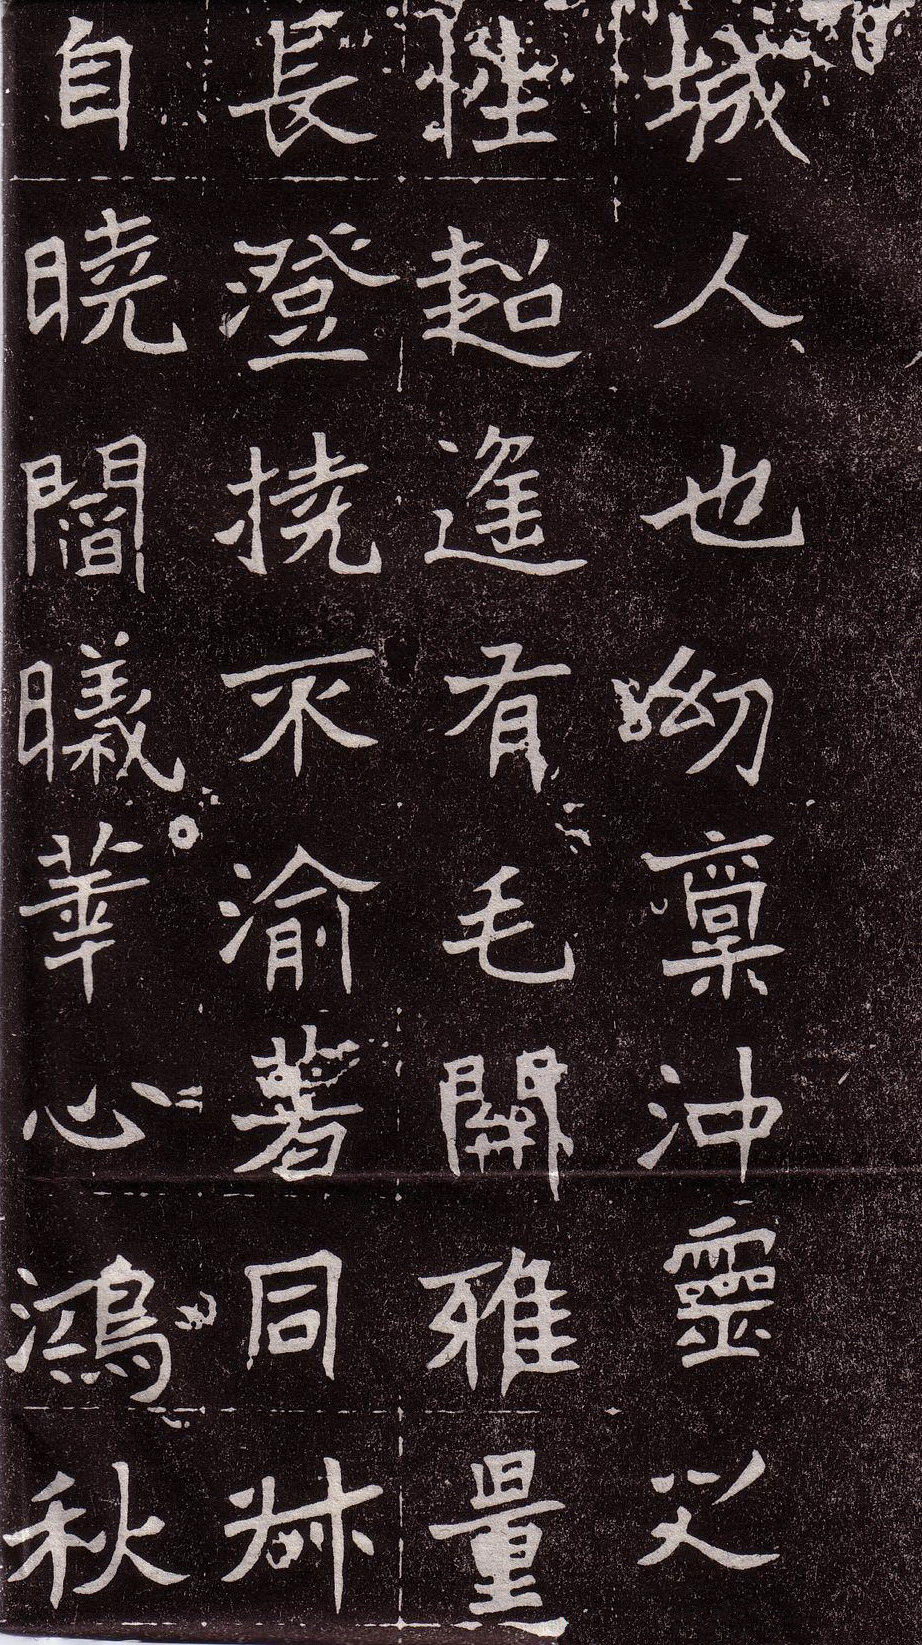 城人也幼稟沖靈之
性超遙有毛關雅量
長澄撓不渝著同叔
自曉闇曦華心鴻秋